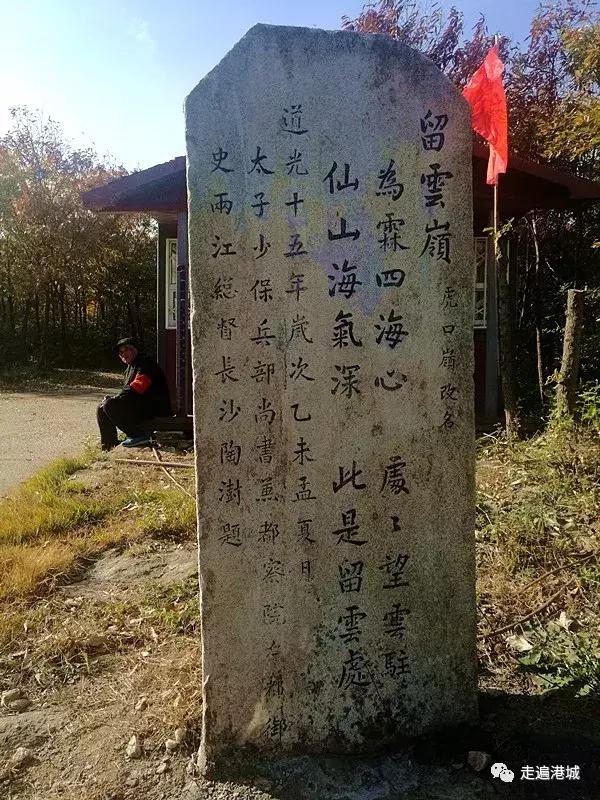 留雲嶺 虎口嶺改名
為霖四海心 處〻望雲駐
仙山海氣深 此是留雲處
道光十五年歲次乙未孟夏月
太子少保兵部尚書兼都察院右都御
史兩江總督長沙陶澍題
走遍港城